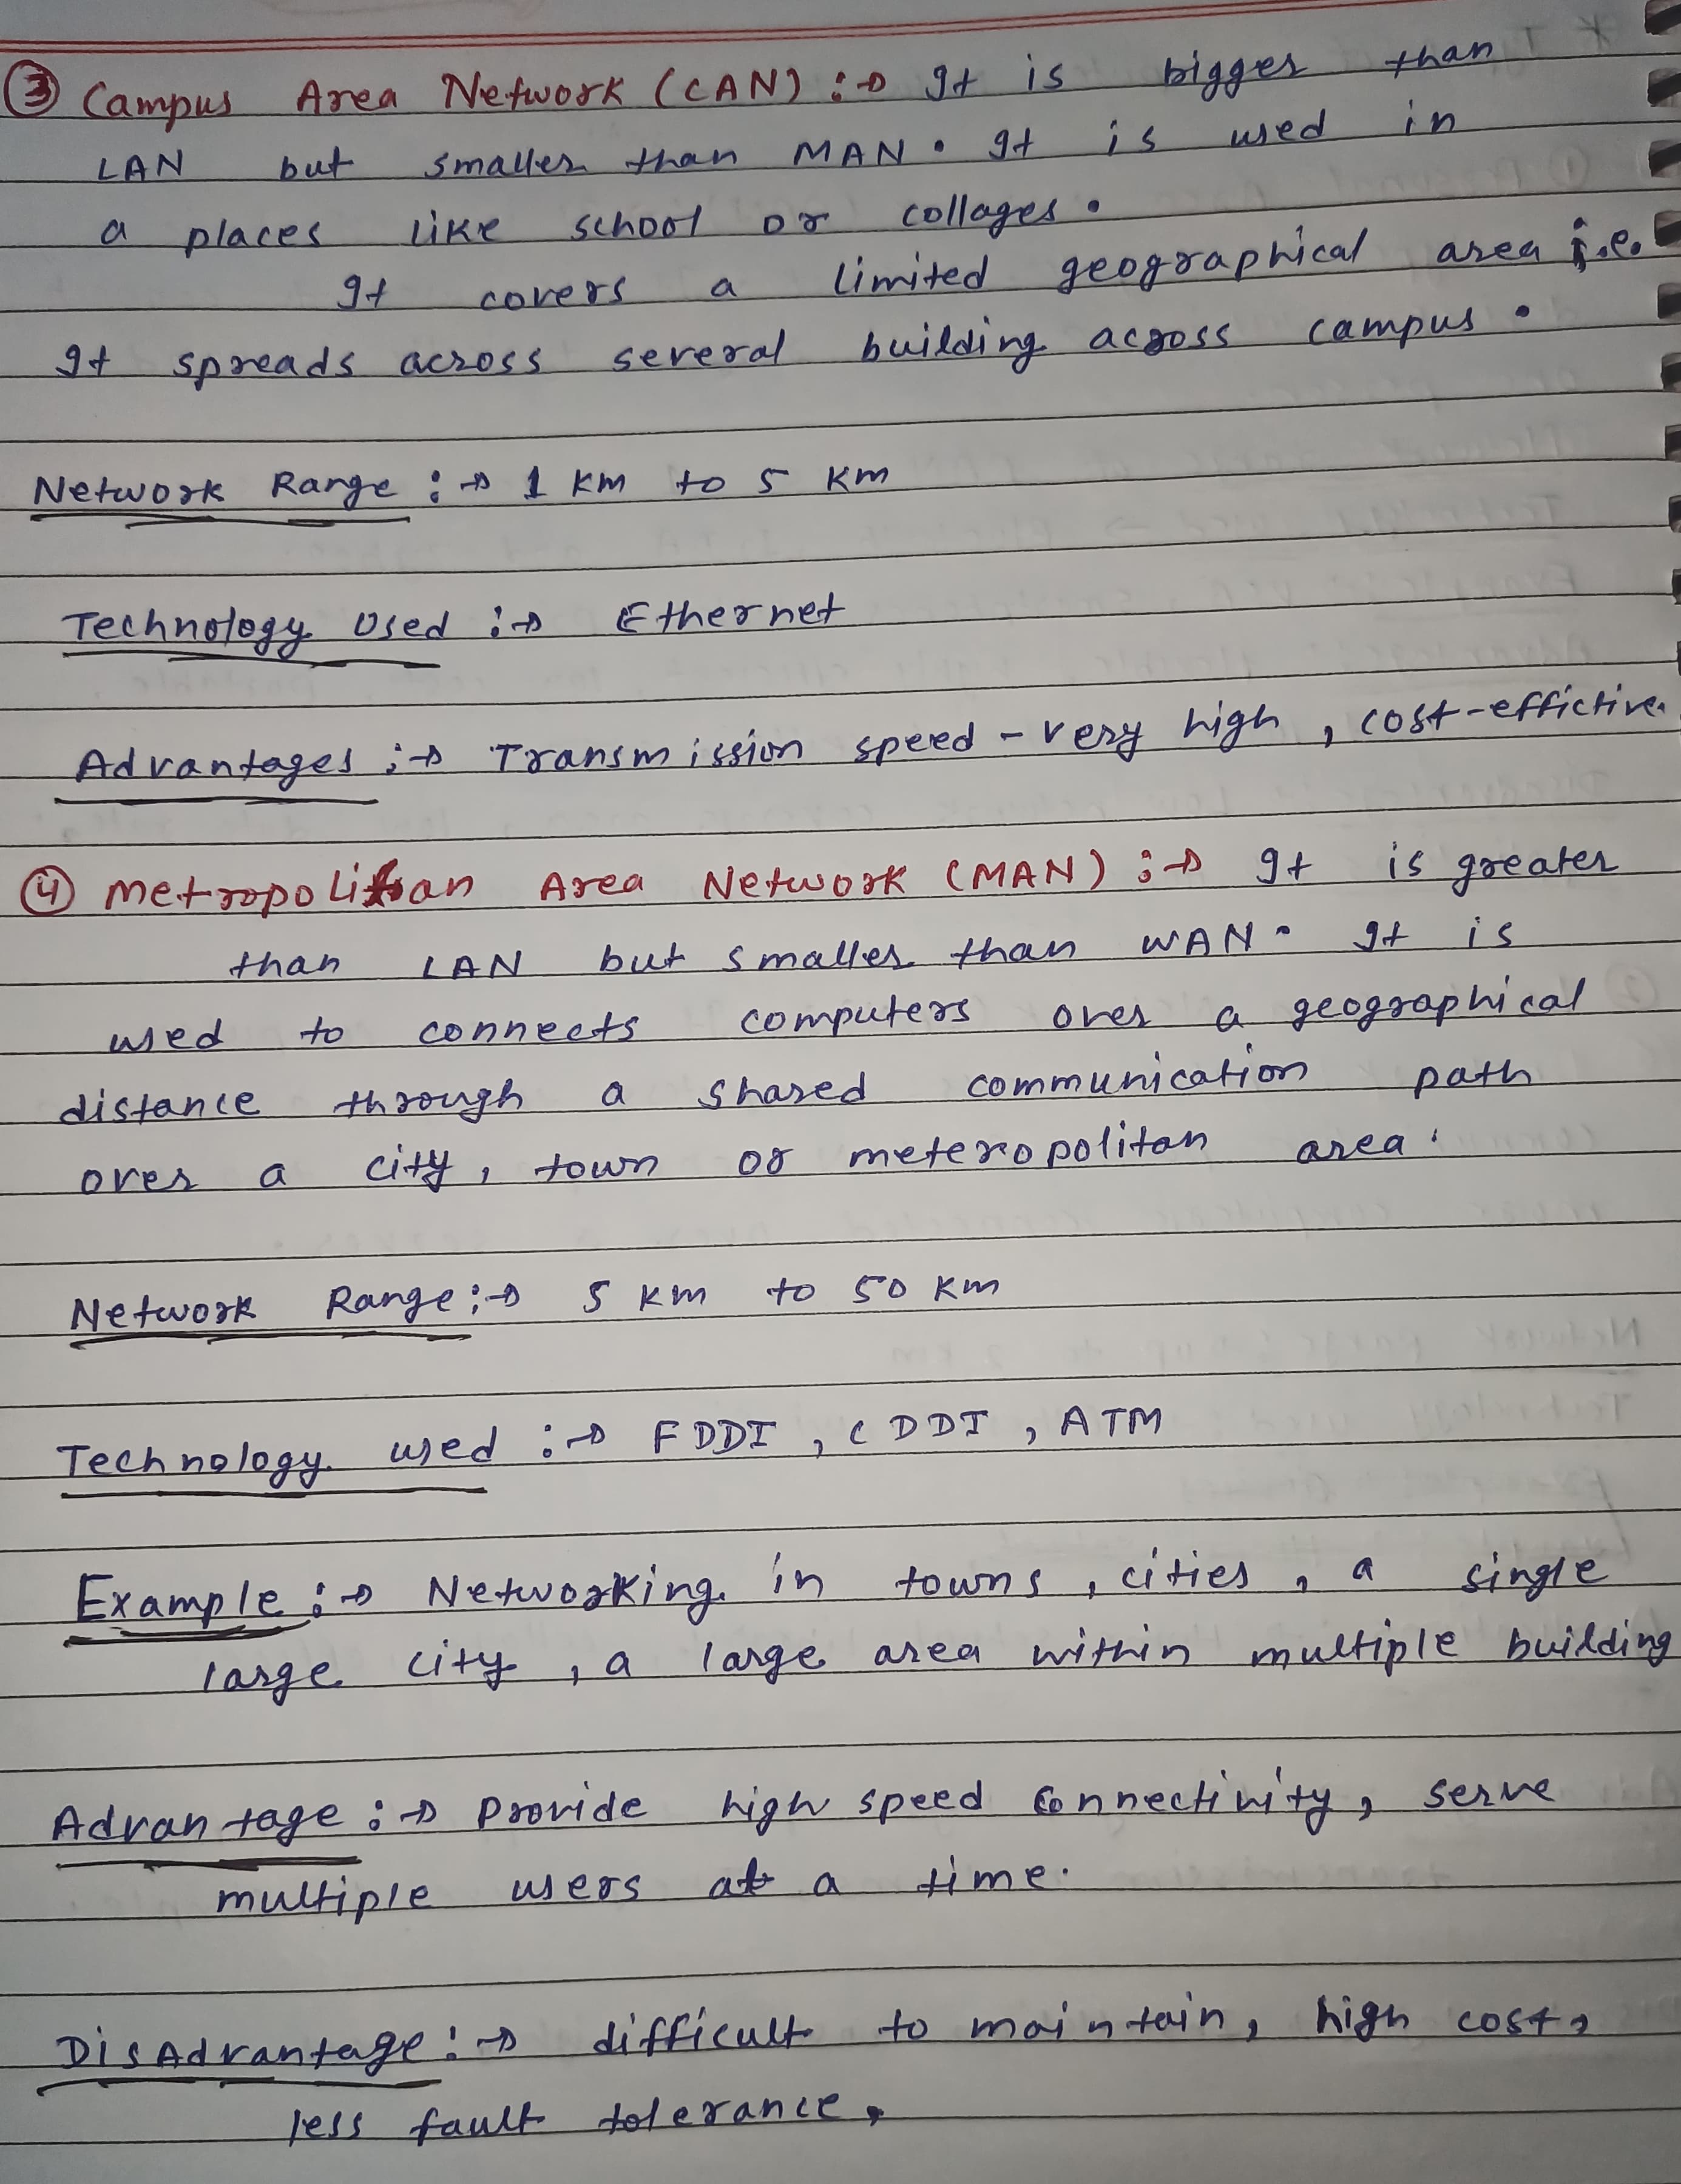 ③ Campus Area Network (CAN) :→ It is bigger than
LAN but smaller than MAN. It is used in
a places like school or collages.
It covers a limited geographical area i.e.
It spreads across several building across campus.
Network Range :→ 1 km to 5 km
Technology Used :→ Ethernet
Advantages :→ Transmission speed - very high, cost-effictive.
④ Metropolitan Area Network (MAN) :→ It is greater
than LAN but smaller than WAN. It is
used to connects computers over a geographical
distance through a shared communication path
over a city, town or meteropolitan area.
Network Range :→ 5 km to 50 km
Technology used :→ FDDI, CDDI, ATM
Example :→ Networking in towns, cities, a single
large city, a large area within multiple building
Advantage :→ Provide high speed connectivity, serve
multiple users at a time.
DisAdvantage :→ difficult to maintain, high cost,
less fault tolerance.